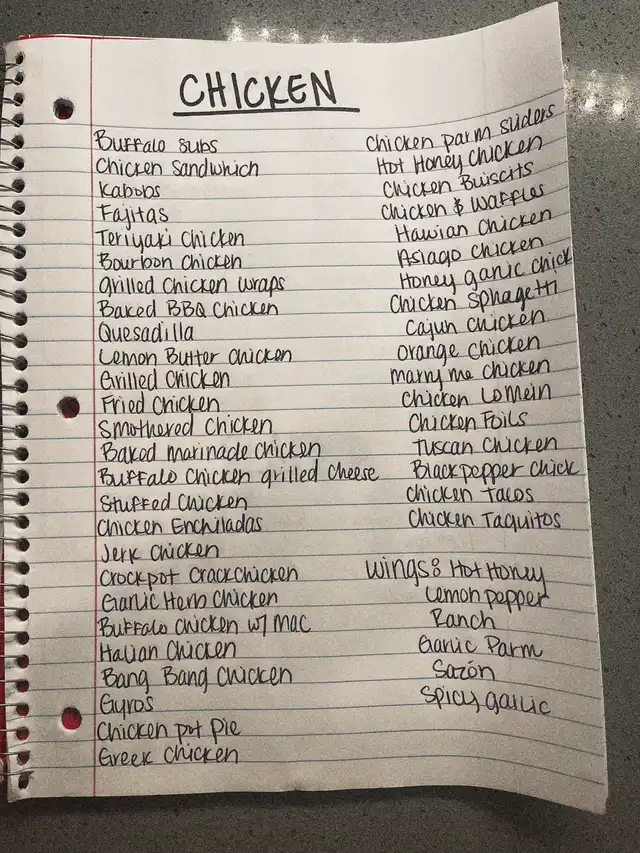 CHICKEN
Buffalo subs
Chicken Sandwhich
Kabobs
Fajitas
Teriyaki Chicken
Bourbon Chicken
grilled Chicken wraps
Baked BBQ Chicken
Quesadilla
Lemon Butter Chicken
Grilled Chicken
Fried Chicken
Smothered Chicken
Baked marinade Chicken
Buffalo Chicken grilled Cheese
Stuffed Chicken
Chicken Enchiladas
Jerk Chicken
Crockpot Crackchicken
Garlic Herb Chicken
Buffalo Chicken w/ mac
Italian Chicken
Bang Bang Chicken
Gyros
Chicken pot pie
Greek Chicken
Chicken parm sliders
Hot Honey Chicken
Chicken Buiscits
Chicken & Waffles
Hawian Chicken
Asiago Chicken
Honey garlic chick
Chicken Sphagetti
Cajun Chicken
Orange Chicken
marry me chicken
Chicken Lo mein
Chicken Foils
Tuscan Chicken
Blackpepper Chick
Chicken Tacos
Chicken Taquitos
Wings: Hot Honey
Lemon pepper
Ranch
Garlic Parm
Sazón
Spicy garlic